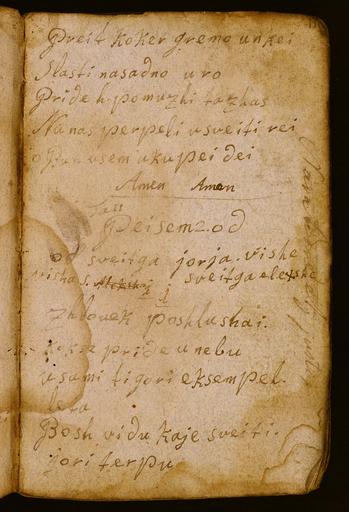 Preit koker gremo unkei
Slasti nasadno uro
Pride hpomuzhi tazhas
Nanas perpeli usveiti rei
usem ukupei dei
Amen Amen
Peisem 2. od
od sveitga jorja. vishe
visha S. sveitga elekshe
Zhlovek poshlushai.
koksa pride unebu
usami tigori eksempel
lera
Bosh vidu kaje sveiti.
jori terpu